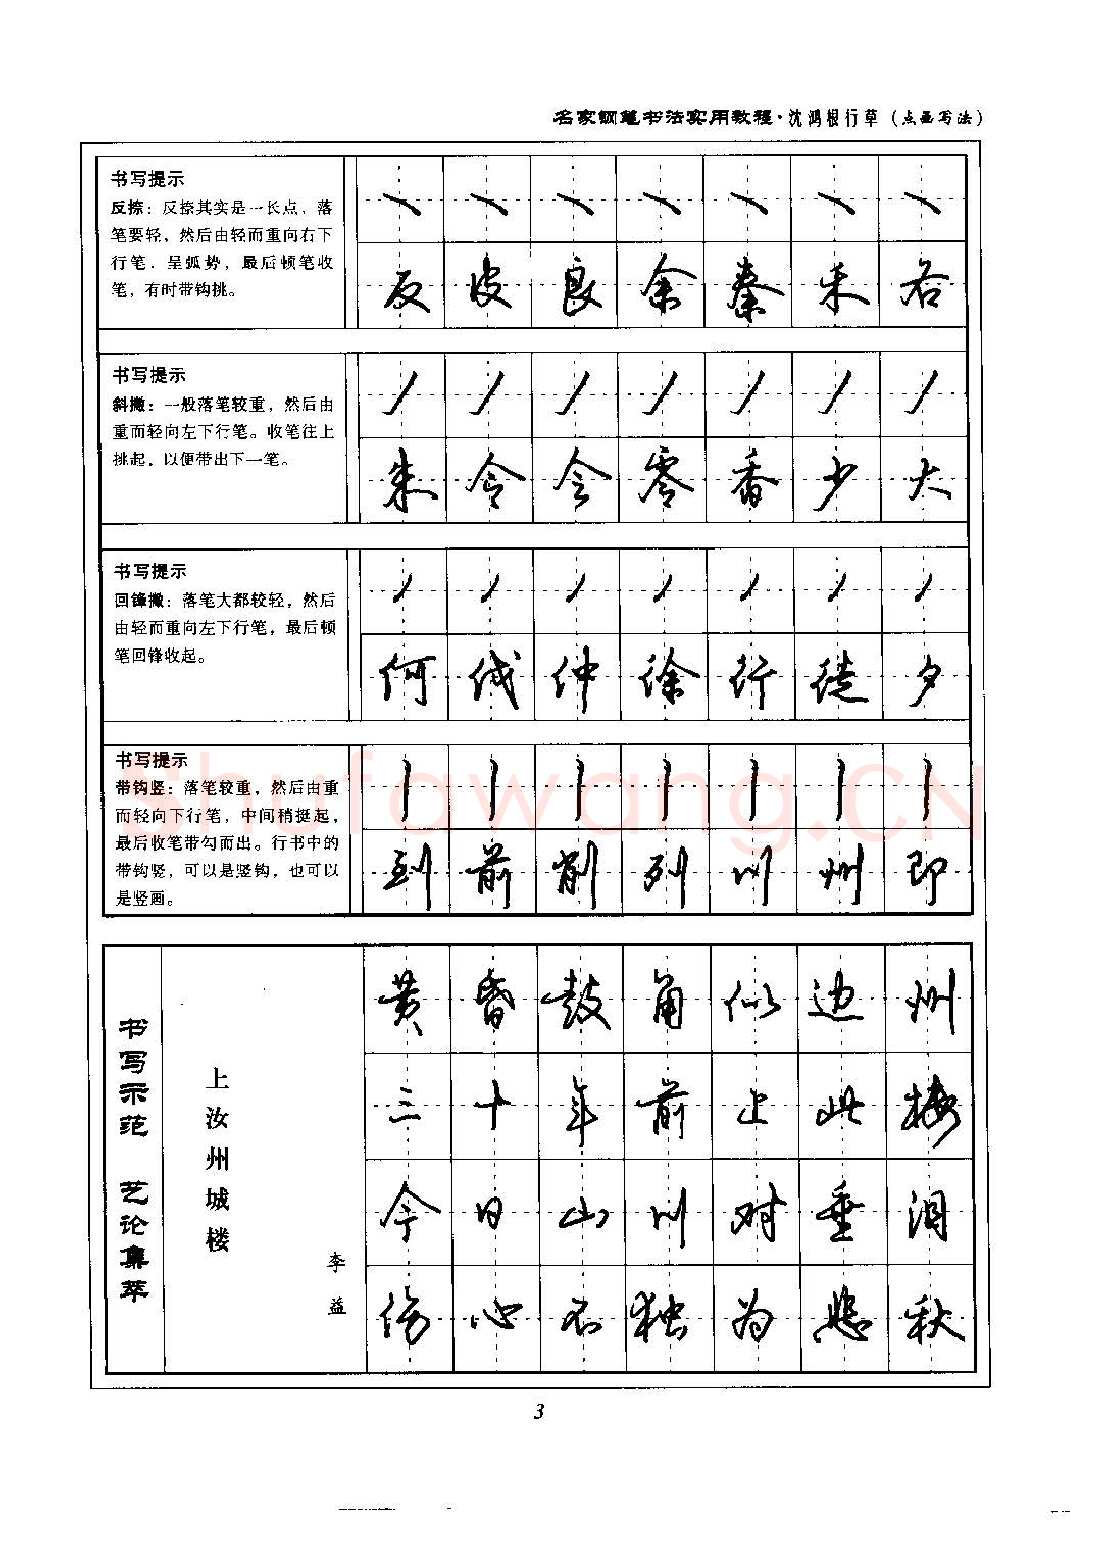 名家钢笔书法实用教程·沈鸿根行草(点画写法)
书写提示
反捺:反捺其实是一长点,落
笔要轻,然后由轻而重向右下
行笔.呈弧势,最后顿笔收
笔,有时带钩挑。
反皮良余秦禾谷
书写提示
斜撇:一般落笔较重,然后由
重而轻向左下行笔。收笔往上
挑起,以便带出下一笔。
朱令令零香少大
书写提示
回锋撇:落笔大都较轻,然后
由轻而重向左下行笔,最后顿
笔回锋收起。
何伐仲徐行徒夕
书写提示
带钩竖:落笔较重,然后由重
而轻向下行笔,中间稍挺起,
最后收笔带勾而出。行书中的
带钩竖,可以是竖钩,也可以
是竖画。
到前削列川州即
书写示范 艺论集萃
上汝州城楼
李益
黄昏鼓角似边州
三十年前上此楼
今日山川对垂泪
伤心不独为悲秋
3
Shufawang.CN